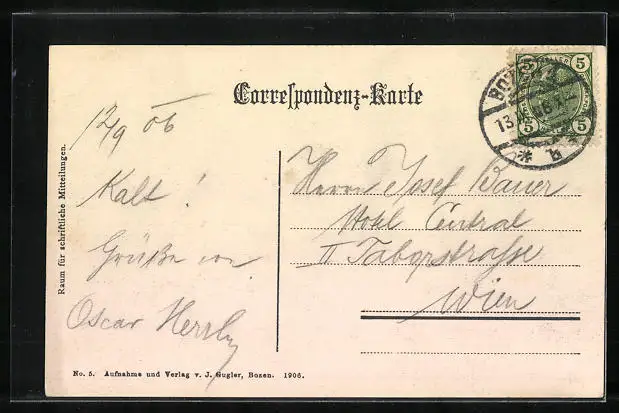 Correspondenz-Karte
5 5
5 5
BOZEN
13
* b
12/9 06
Kalt!
Grüße von
Oscar
Herrn Josef Bauer
Hotel Central
II Taborstrasse
Wien
Raum für schriftliche Mitteilungen.
No. 5. Aufnahme und Verlag v. J. Gugler, Bozen. 1906.